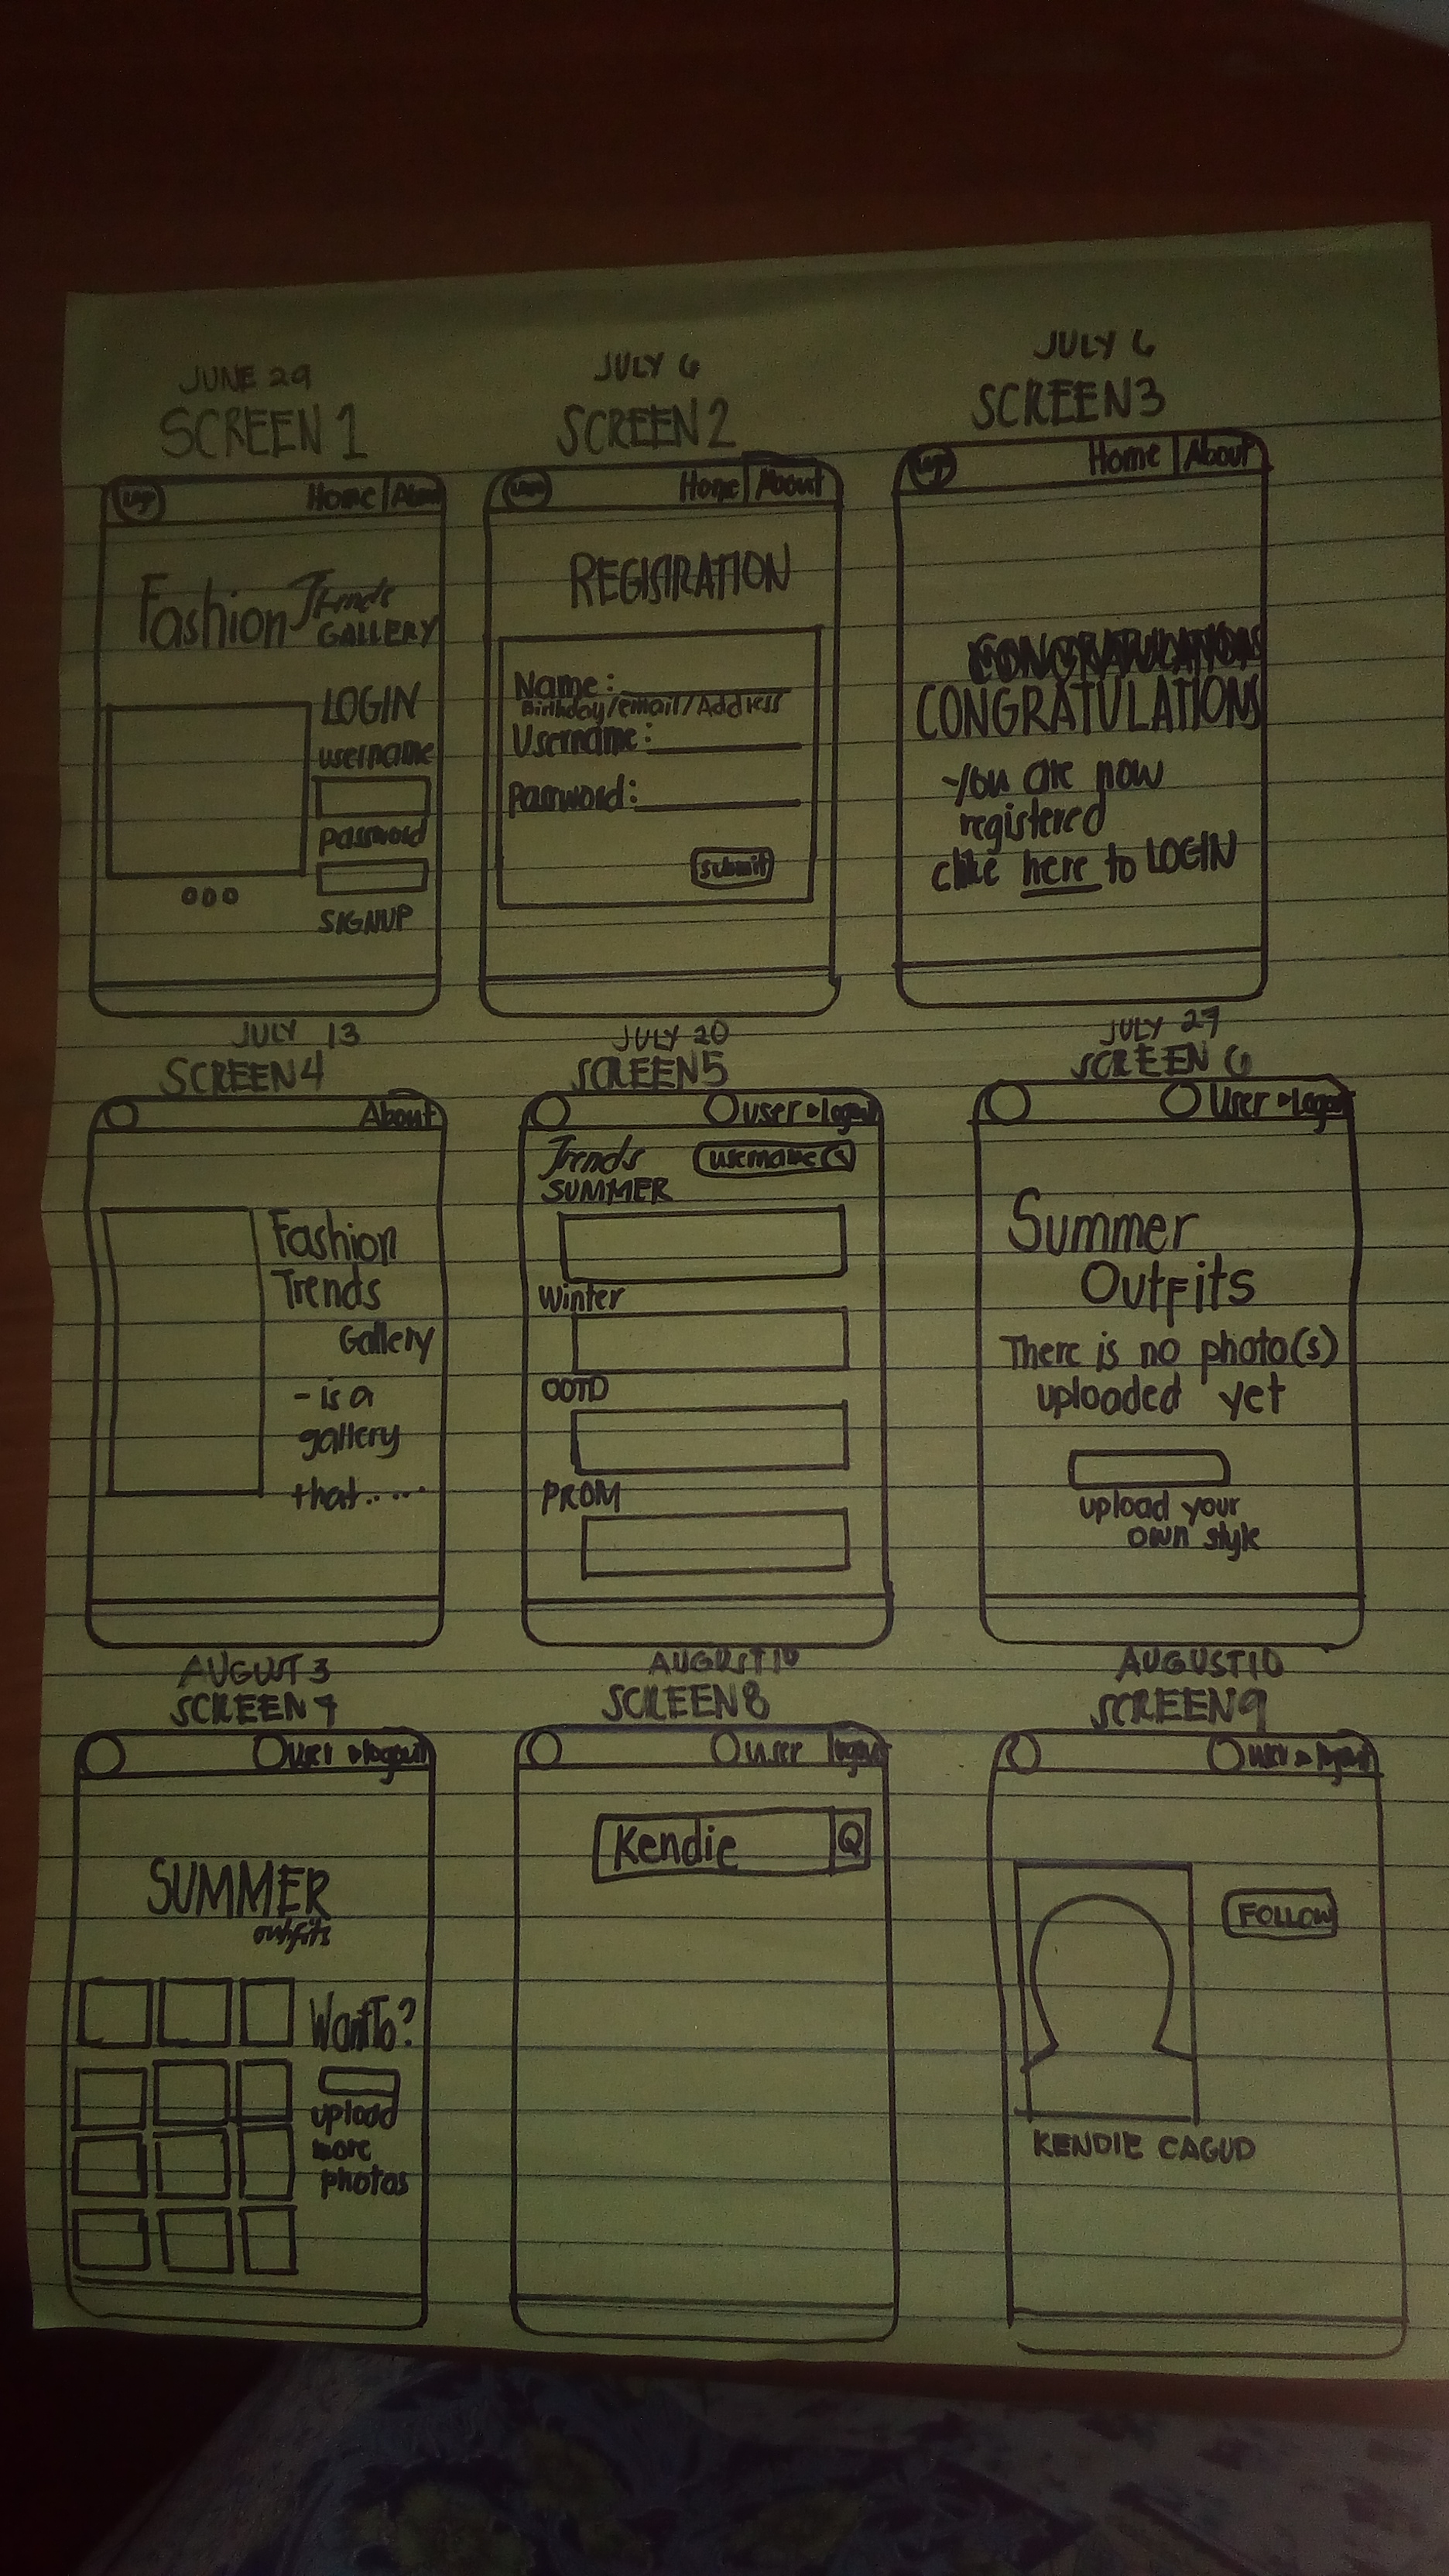 JUNE 29
SCREEN 1
Logo
Home | About
Fashion Trends
GALLERY
LOGIN
username
password
SIGNUP
JULY 6
SCREEN 2
Logo
Home | About
REGISTRATION
Name:
Birthday/email/Address
Username:
Password:
submit
JULY 6
SCREEN 3
Logo
Home | About
CONGRATULATIONS
CONGRATULATIONS
-You are now
registered
here to LOGIN
JULY 13
SCREEN 4
About
Fashion
Trends
Gallery
- is a
gallery
that.....
JULY 20
SCREEN 5
user logout
Trends
SUMMER
username
Winter
OOTD
PROM
JULY 27
SCREEN 6
User Logout
Summer
Outfits
There is no photo(s)
uploaded yet
upload your
own style
AUGUST 3
SCREEN 7
user logout
SUMMER
outfits
Want To?
upload
more
photos
AUGUST 10
SCREEN 8
user logout
Kendie
AUGUST 10
SCREEN 9
user logout
FOLLOW
KENDIE CAGUD